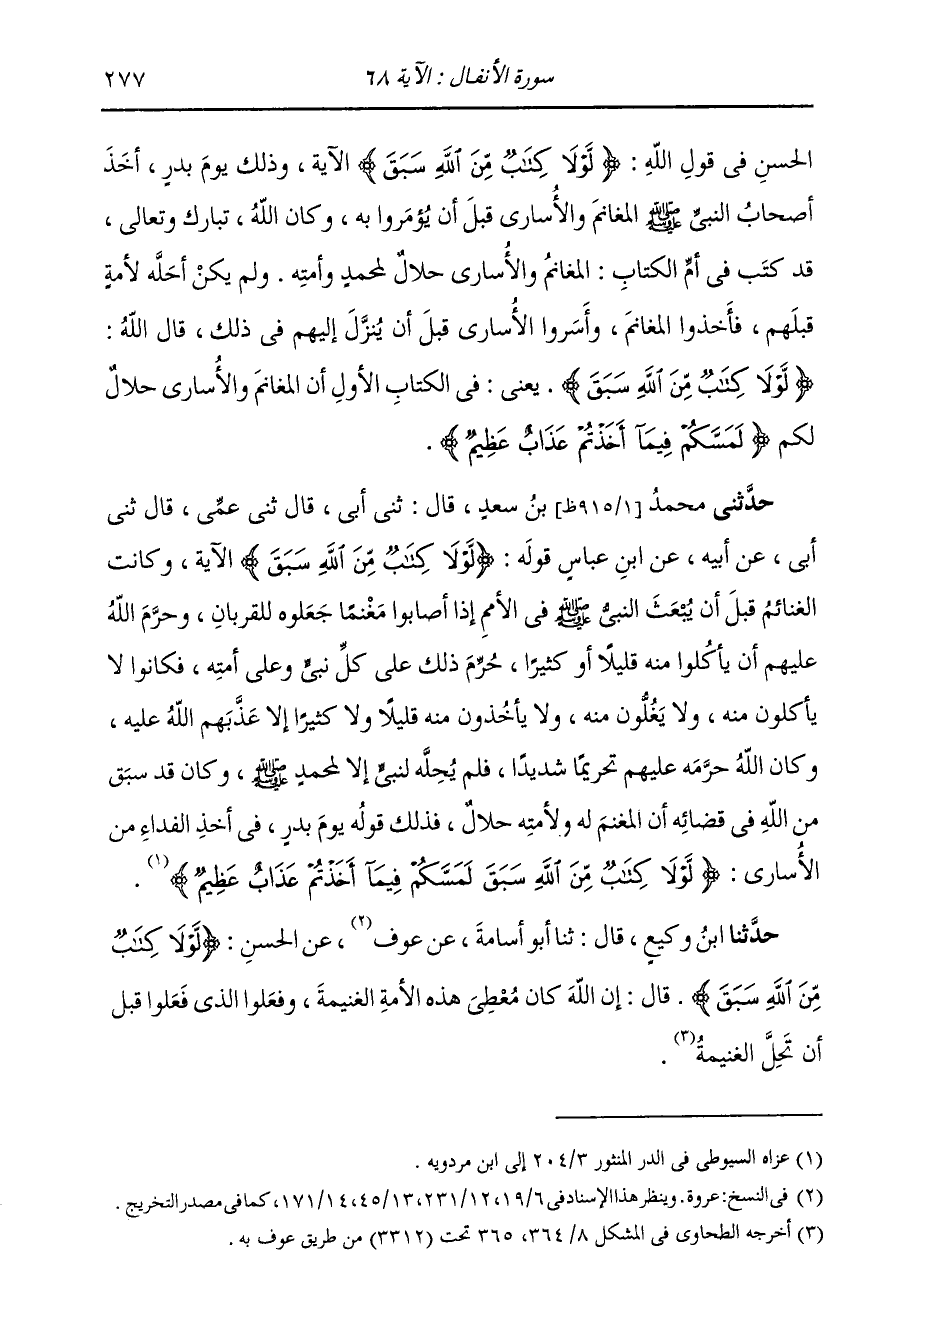 سورة الأنفال : الآية ٦٨
٢٧٧
الحسنِ فى قولِ اللّهِ : ﴿ لَّوْلَا كِتَٰبٌ مِّنَ ٱللَّهِ سَبَقَ ﴾ الآية ، وذلك يومَ بدرٍ ، أخَذ
أصحابُ النبىِّ ﷺ المغانمَ والأُسارى قبلَ أن يُؤمَروا به ، وكان اللّهُ ، تبارك وتعالى ،
قد كتَب فى أمِّ الكتابِ : المغانمُ والأُسارى حلالٌ لمحمدٍ وأمتِه . ولم يكنْ أحَلَّه لأمةٍ
قبلَهم ، فأَخذوا المغانمَ ، وأَسَروا الأُسارى قبلَ أن يُنزَّلَ إليهم فى ذلك ، قال اللّهُ :
﴿ لَّوْلَا كِتَٰبٌ مِّنَ ٱللَّهِ سَبَقَ ﴾ . يعنى : فى الكتابِ الأولِ أن المغانمَ والأُسارى حلالٌ
لكم ﴿ لَمَسَّكُمْ فِيمَآ أَخَذْتُمْ عَذَابٌ عَظِيمٌ ﴾ .
حدَّثنى محمدُ [٩١٥/١ظ] بنُ سعدٍ ، قال : ثنى أبى ، قال ثنى عمِّى ، قال ثنى
أبى ، عن أبيه ، عن ابنِ عباسٍ قولَه : ﴿لَّوْلَا كِتَٰبٌ مِّنَ ٱللَّهِ سَبَقَ ﴾ الآية ، وكانت
الغنائمُ قبلَ أن يُبْعَثَ النبىُّ ﷺ فى الأممِ إذا أصابوا مَغْنمًا جَعَلوه للقربانِ ، وحرَّمَ اللّهُ
عليهم أن يأكُلوا منه قليلًا أو كثيرًا ، حُرِّمَ ذلك على كلِّ نبىٍّ وعلى أمتِه ، فكانوا لا
يأكلون منه ، ولا يَغُلُّون منه ، ولا يأخُذون منه قليلًا ولا كثيرًا إلا عَذَّبَهم اللّهُ عليه ،
وكان اللّهُ حرَّمَه عليهم تحريمًا شديدًا ، فلم يُحِلَّه لنبىٍّ إلا لمحمدٍ ﷺ ، وكان قد سبَق
من اللّهِ فى قضائِه أن المغنمَ له ولأمتِه حلالٌ ، فذلك قولُه يومَ بدرٍ ، فى أخذِ الفداءِ من
الأُسارى : ﴿ لَّوْلَا كِتَٰبٌ مِّنَ ٱللَّهِ سَبَقَ لَمَسَّكُمْ فِيمَآ أَخَذْتُمْ عَذَابٌ عَظِيمٌ ﴾(١) .
حدَّثنا ابنُ وكيعٍ ، قال : ثنا أبو أسامةَ ، عن عوف(٢) ، عن الحسنِ : ﴿لَّوْلَا كِتَٰبٌ
مِّنَ ٱللَّهِ سَبَقَ ﴾ . قال : إن اللّهَ كان مُعْطِىَ هذه الأمةِ الغنيمةَ ، وفعَلوا الذى فَعَلوا قبل
أن تَحِلَّ الغنيمةُ(٣) .
(١) عزاه السيوطى فى الدر المنثور ٢٠٤/٣ إلى ابن مردويه .
(٢) فى النسخ : عروة . وينظر هذا الإسناد فى ١٩/٦، ٢٣١/١٢، ٤٥/١٣، ١٧١/١٤، كما فى مصدر التخريج .
(٣) أخرجه الطحاوى فى المشكل ٨/ ٣٦٤، ٣٦٥ تحت (٣٣١٢) من طريق عوف به .